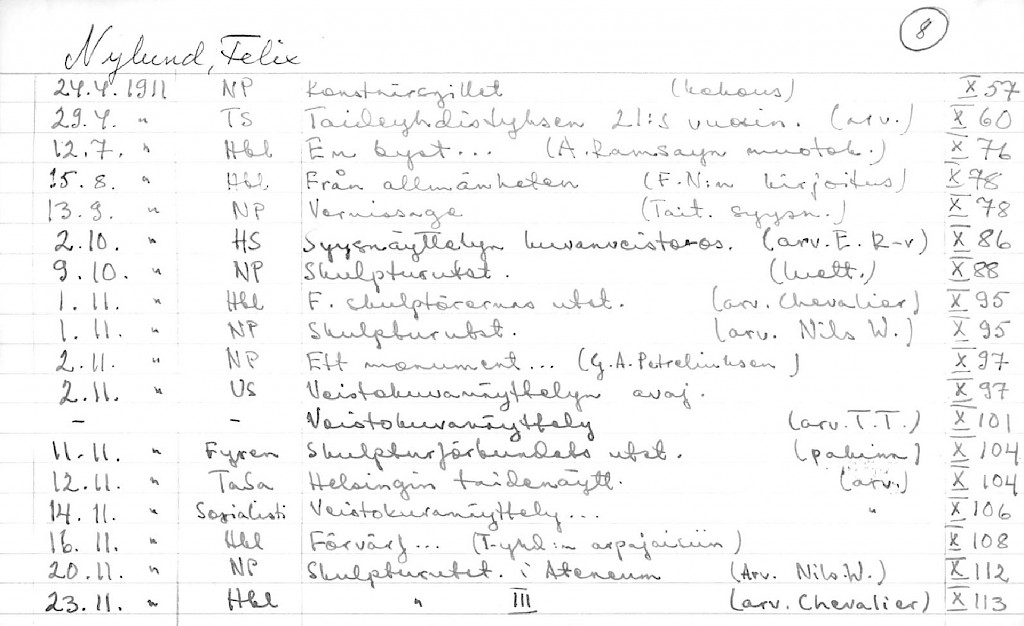 8
Nylund, Felix
24.4. 1911 NP Konstnärsgillet (kokous) X 57
29.4. " TS Taideyhdistyksen 21:s vuosin. (arv.) X 60
12.7. " Hbl En byst... (A. Ramsayn muotok.) X 76
15.8. " Hbl Från allmänheten (F.N:n kirjoitus) X 78
13.9. " NP Vernissage (Tait. syysn.) X 78
2.10. " HS Syysnäyttelyn kuvanveistoos. (arv. E. R-v) X 86
9.10. " NP Skulpturutst. (luett.) X 88
1.11. " Hbl F. skulptörernas utst. (arv. Chevalier) X 95
1.11. " NP Skulpturutst. (arv. Nils W.) X 95
2.11. " NP Ett monument... (G.A. Petreliuksen) X 97
2.11. " US Veistokuvanäyttelyn avaj. X 97
- - Veistokuvanäyttely (arv. T.T.) X 101
11.11. " Fyren Skulpturförbundets utst. (pakina) X 104
12.11. " TaSa Helsingin taidenäytt. (arv.) X 104
14.11. " Sosialisti Veistokuvanäyttely... " X 106
16.11. " Hbl Förvärf... (T-yhd:n arpajaisiin) X 108
20.11. " NP Skulpturutst. i Ateneum (Arv. Nils W.) X 112
23.11. " Hbl " III (arv. Chevalier) X 113